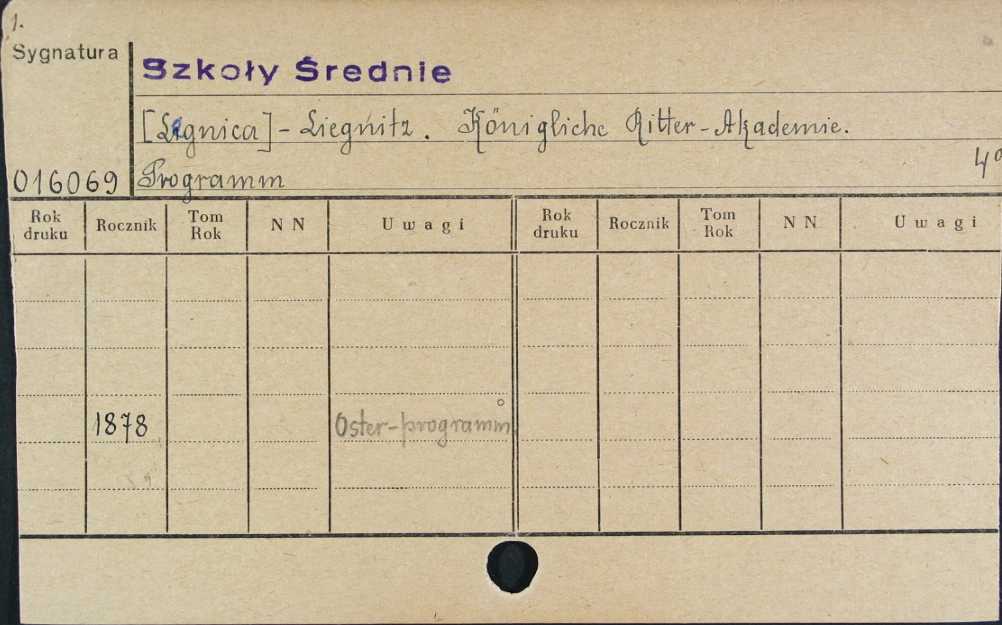 1.
Sygnatura
Szkoły Średnie
[Legnica] - Liegnitz. Königliche Ritter-Akademie.
4°
016069 Programm
Rok druku Rocznik Tom Rok N N Uwagi Rok druku Rocznik Tom Rok N N Uwagi
1878 Oster-programm